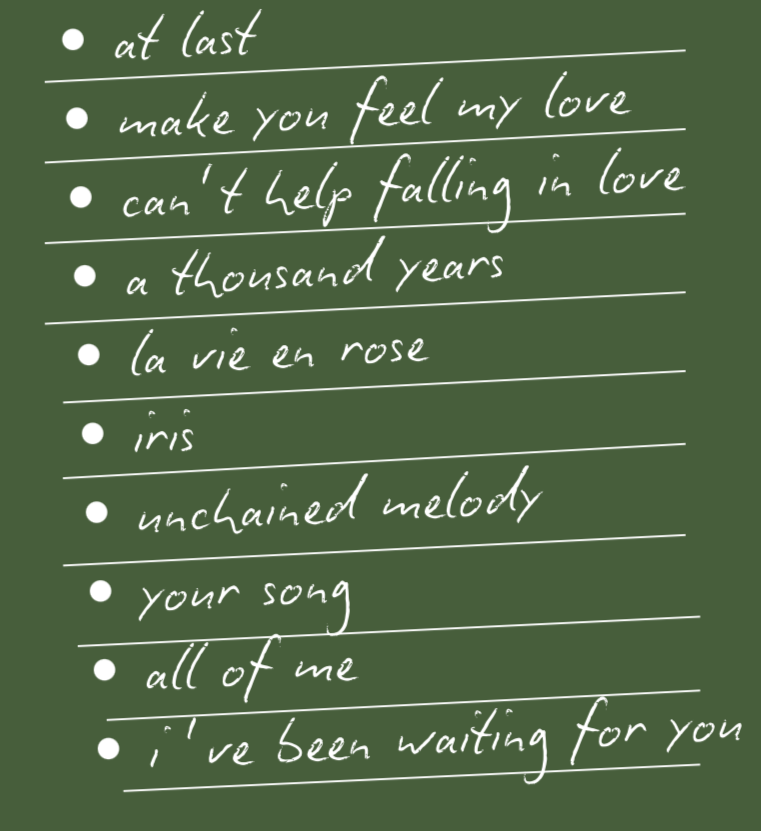 • at last
• make you feel my love
• can't help falling in love
• a thousand years
• la vie en rose
• iris
• unchained melody
• your song
• all of me
• i've been waiting for you